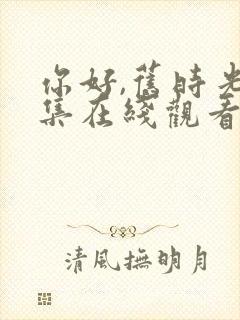 你好,舊時光
集在綫觀看
清風撫明月